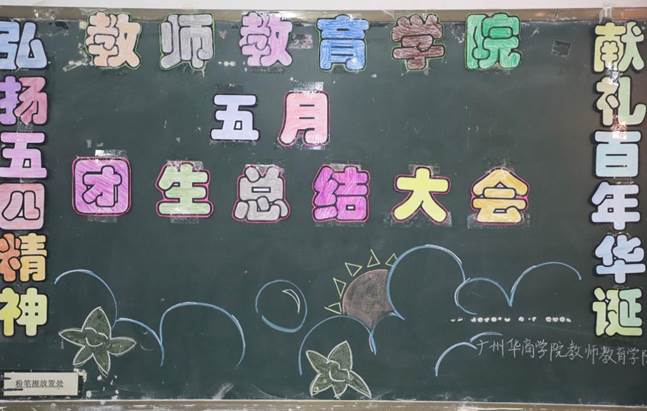 教师教育学院
五月
团生总结大会
弘扬五四精神
献礼百年华诞
广州华商学院教师教育学院
粉笔擦放置处